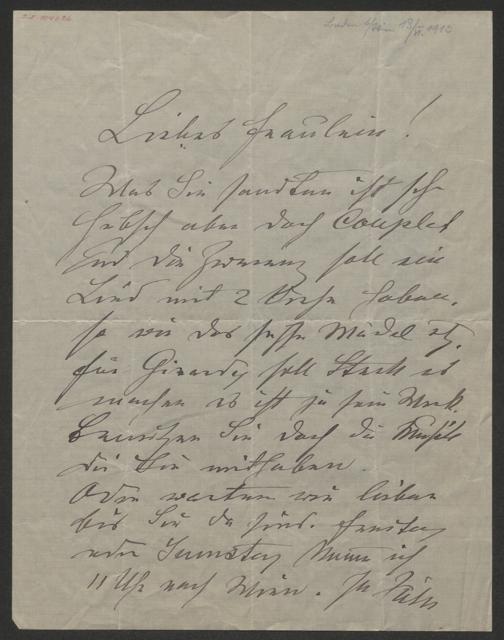 Baden b/Wien 13/VI. 1910
Liebes Fräulein!
Was Sie sandten ist sehr
hübsch aber doch Couplet
und die Zwerenz soll ein
Lied mit 2 Verse haben.
so wie das süsse Mädel etz.
für Girardi soll Stark es
machen es ist ja sein Werk.
Benutzen Sie doch die Musik
die Sie mithaben.
Oder warten wir lieber
bis Sie da sind. Freitag
oder Samstag komme ich
11 Uhr nach Wien. Im